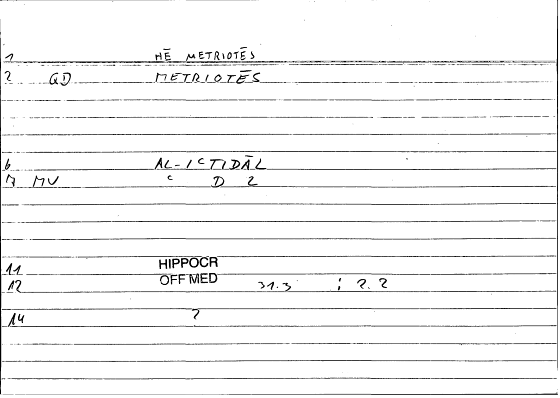 1 HĒ METRIOTĒS
2 QD METRIOTĒS
6 AL-ICTIDĀL
7 MV ʿ D L
11 HIPPOCR
12 OFF MED 31.3 ; 2. 2
14 ?